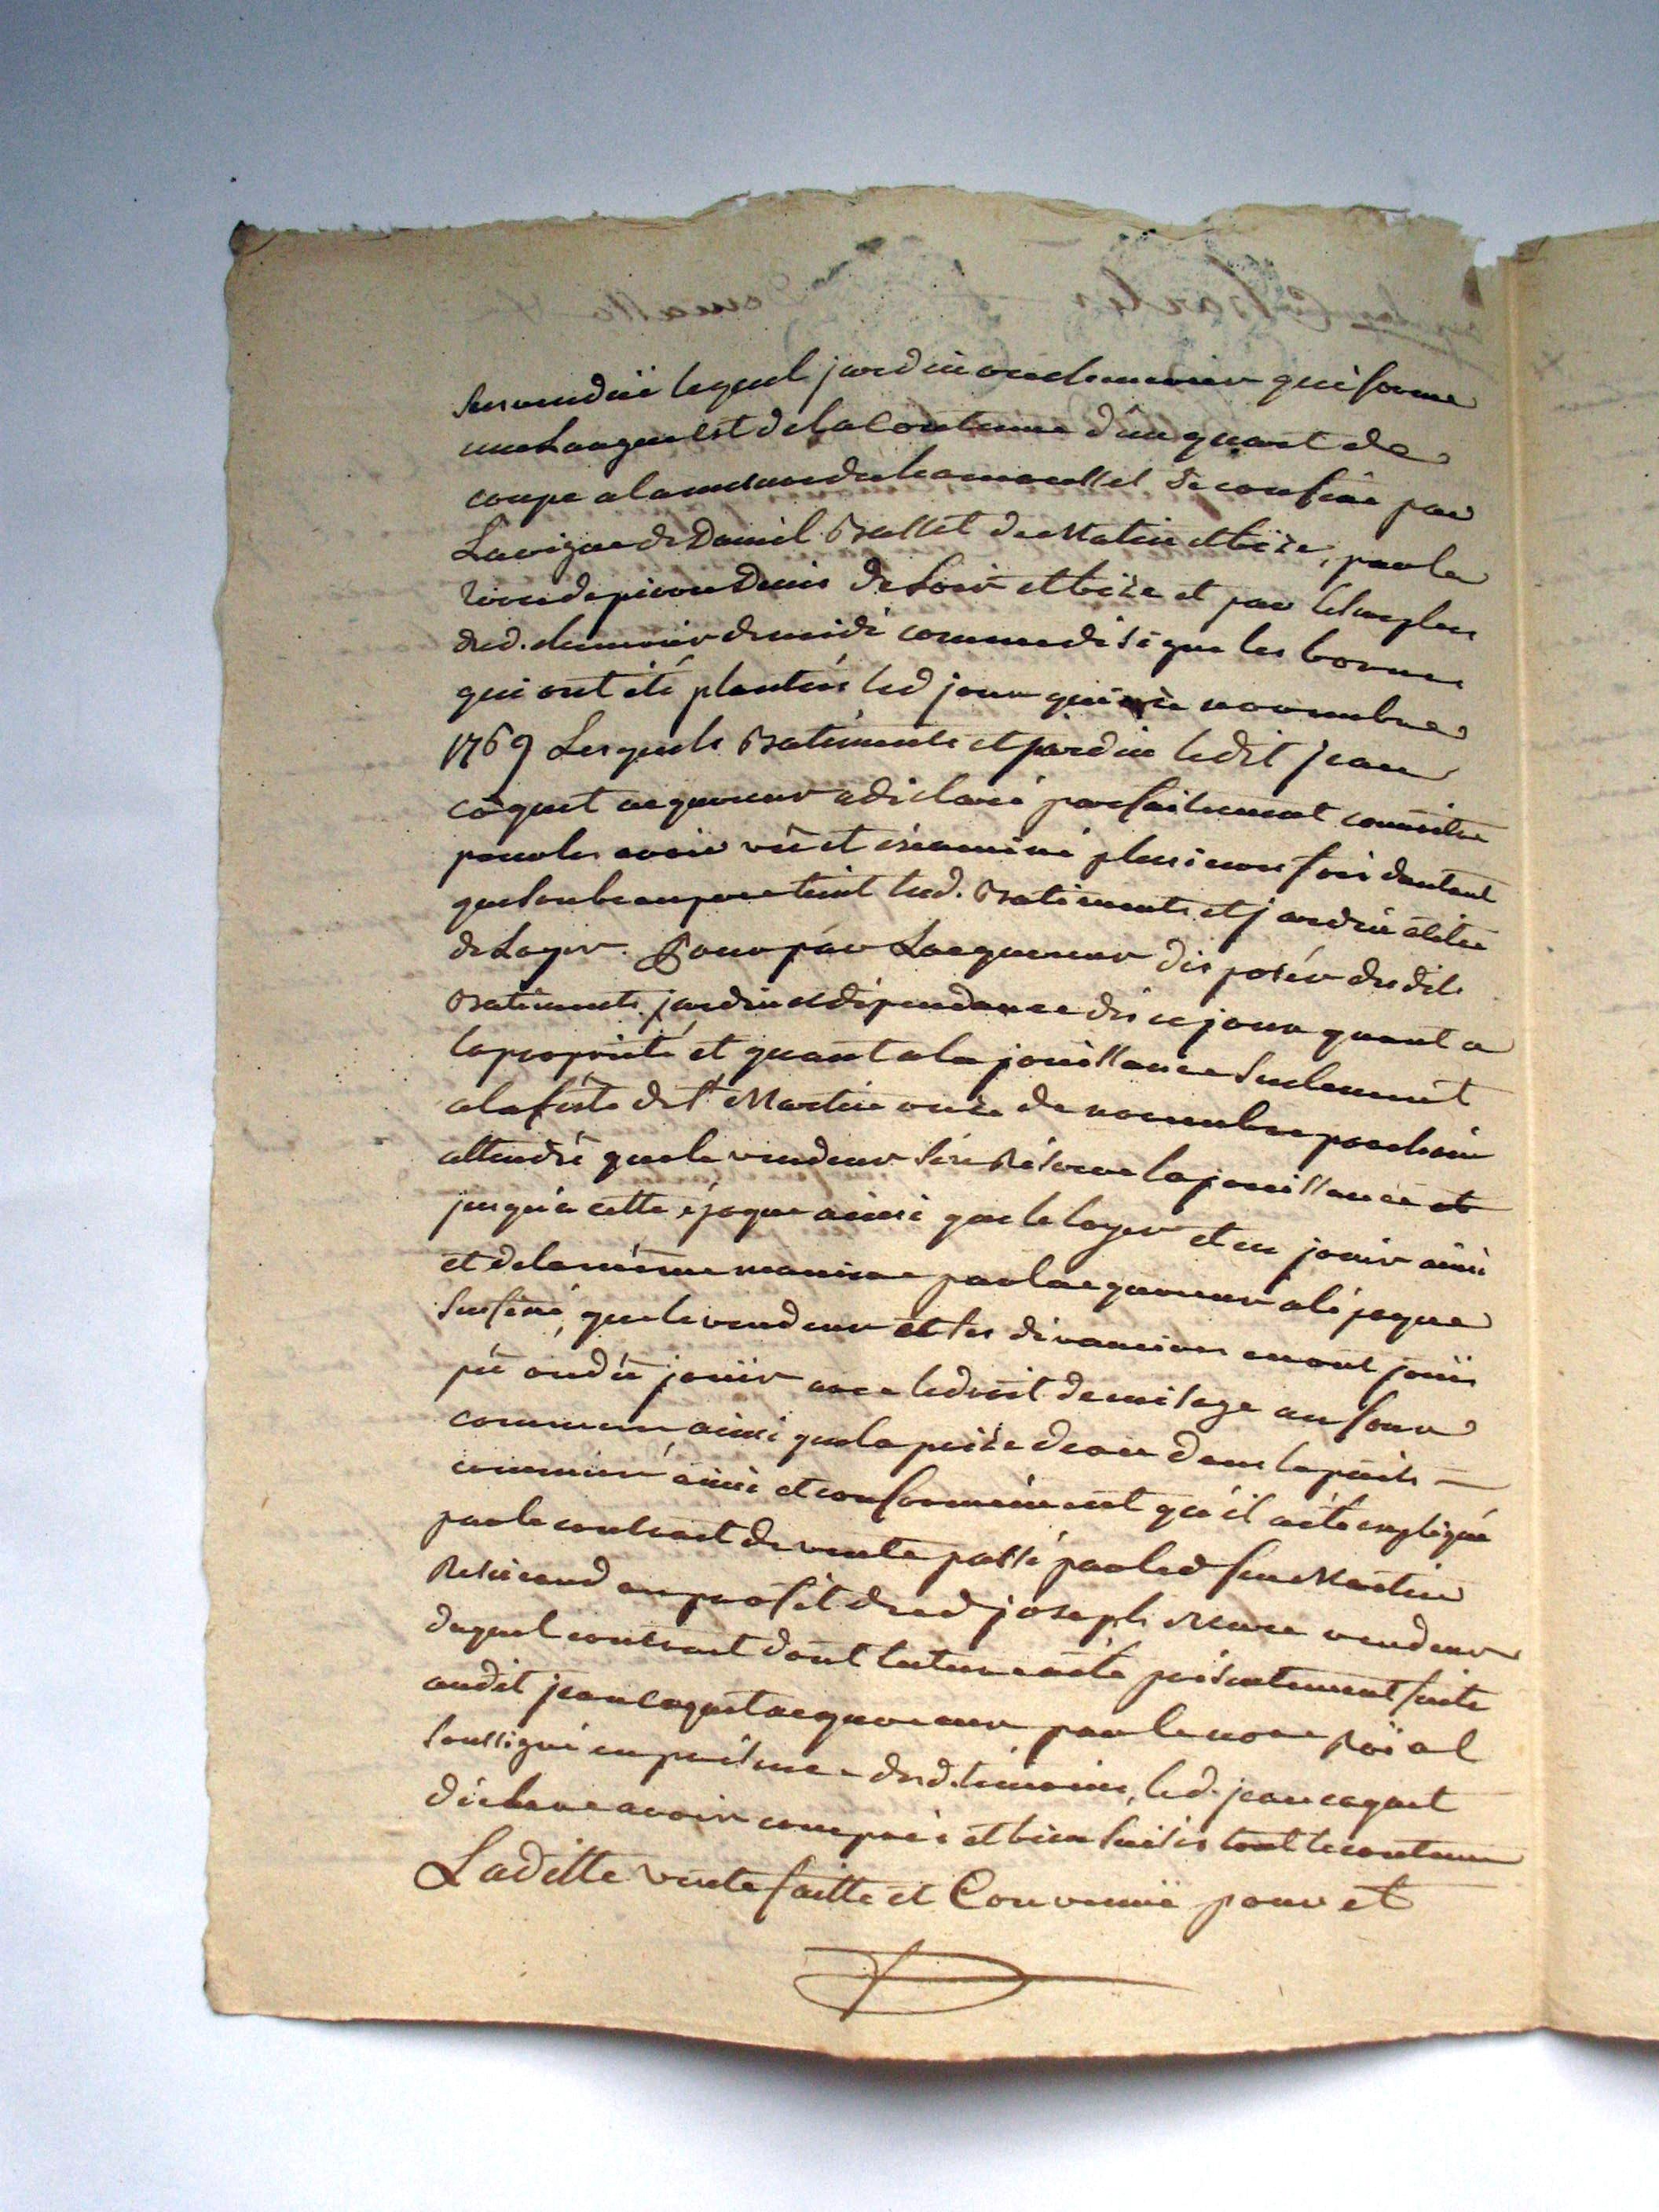 lequel jardin qui forme
une est de la Contenue d'un quart de
coupe a la mesure du se confine par
La vigne de Daniel Ballet de Matin et bize, par la
de pierre Denis de Soir et bize et par le surplus
dud. de midi comme designe les bornes
qui ont été plantées led jour quinze novembre
1769 Lesquels Batiments et jardin ledit jean
coquet acquereur a déclaré parfaitement connoitre
pour les avoir vû et éxaminé plusieurs fois dautant
led. Batiments et jardin a titre
de Loyer. Pour par Lacquereur disposér desdits
Batiments jardin et dépendance dès ce jour quant a
la proprieté et quant a la jouissance seulement
a la fête de St Martin onze de novembre prochain
attendû que le vendeur s'en réserve la jouissance et
jusqu'a cette époque ainsi que le loyer et en jouir ainsi
et de la même maniere par lacquereur a lépoque
susfixé, que le vendeur et ses devanciers en ont joüis
pû ou dû joüir avec le droit de cuisage au four
commun ainsi que la prise deau dans le puits
commun ainsi et conformément qu'il a été expliqué
par le contract de vente passé par led feu Martin
au profit dud joseph vendeur
duquel contract dont lecture a été présentement faite
audit jean coquet acquereur par le nore roïal
soussigné en présence desd. témoins, led. jean coquet
déclare avoir compris et bien saisis tout le contenu
Laditte vente faitte et Convenuë pour et